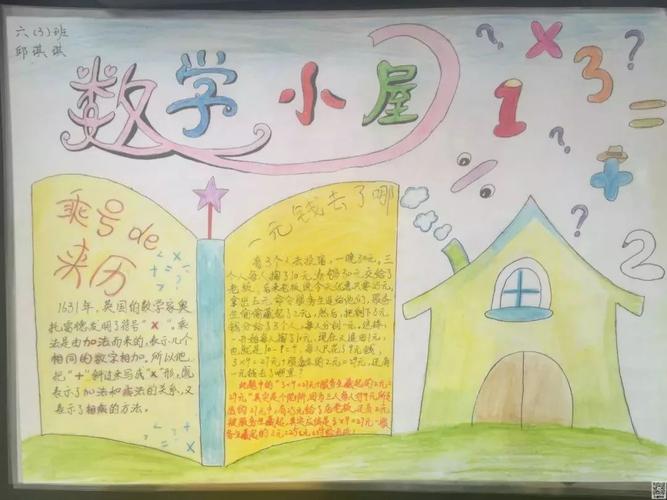 六(3)班
邱琪琪
数学小屋
乘号de
来历
1631年，英国的数学家奥
发明了符号"×"。乘
法是由加法而来的，表示几个
相同的数字相加。所以他
把"+"斜过来写成"×"形，既
表示了加法和乘法的关系，又
表示了相乘的方法。
一元钱去了哪
有3个人去投宿，一晚30元，三
个人每人掏了10元凑够30元交给了
老板，后来老板说今天优惠只要25元，
拿出五元命令服务生退给他们，服务
生偷偷藏起了2元，然后，把剩下3元
钱分给了3个人，每人分到一元。这样，
一开始每人掏了10元，现在又退回1元，
也就是10-9=9，每人只花了9元钱，
3×9=27元+服务生的2元=29元，还有
一元钱去了哪里？
此题中的
29元"其实是个陷阱，因为三人每人付9元，所花
的27元中，有25元给了店老板，还有2元
被服务生藏起，其实应该是3×9=27元
1 × 3 ? =
? % + ? 2